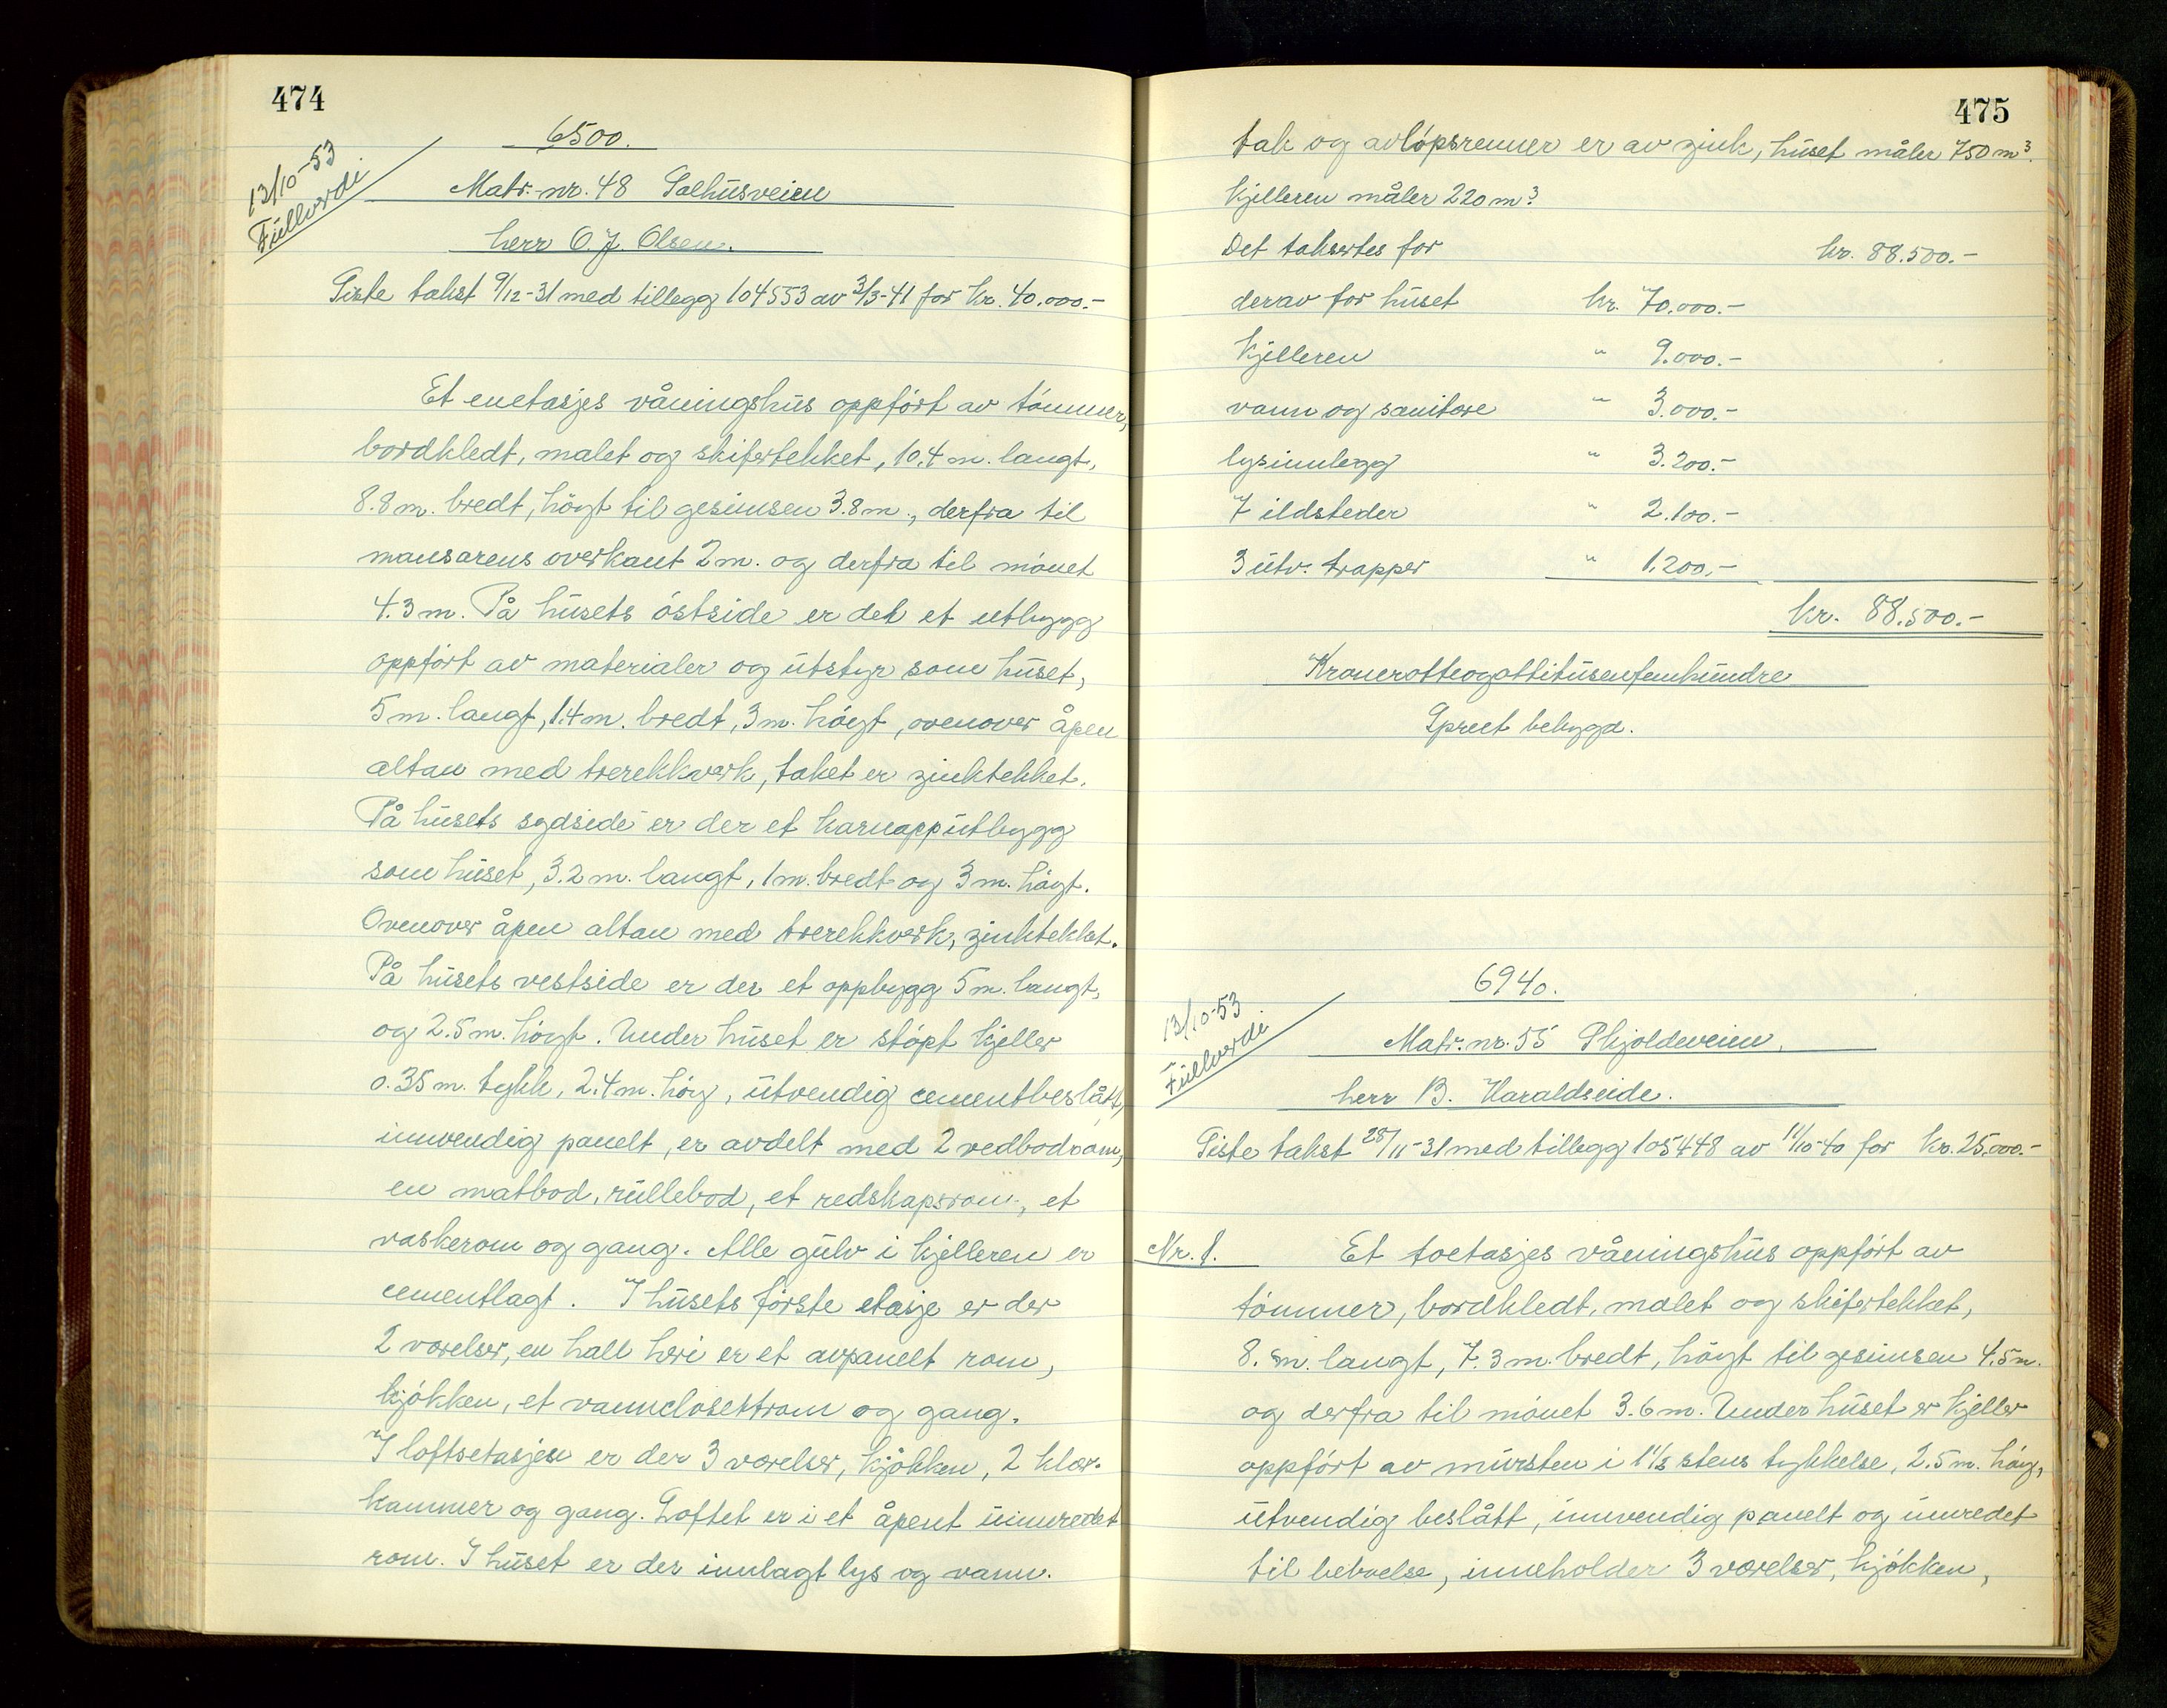 474
6500.
13/10-53
Fullverdi
Matr.-nr. 48 Salhusveien
herr O. J. Olsen.
Siste takst 9/12-31 med tillegg 104553 av 3/3-41 for kr. 40.000.-
Et enetasjes våningshus oppført av tømmer,
bordkledt, malet og skifertekket, 10.4 m. langt,
8.8 m. bredt, høgt til gesimsen 3.8 m., derfra til
mansarens overkant 2 m. og derfra til mønet
4.3 m. På husets østside er det et utbygg
oppført av materialer og utstyr som huset,
5 m. langt, 1.4 m. bredt, 3 m. høgt, ovenover åpen
altan med trerekkverk, taket er zinktekket.
På husets sydside er der et karnapputbygg
som huset, 3.2 m. langt, 1 m. bredt og 3 m. høgt.
Ovenover åpen altan med trerekkverk, zinktekket.
På husets vestside er der et oppbygg 5 m. langt,
og 2.5 m. høgt. Under huset er støpt kjeller
0.35 m. tykk, 2.4 m. høg, utvendig cementbeslått,
innvendig panelt, er avdelt med 2 vedbodrom,
en matbod, rullebod, et redskapsrom, et
vaskerom og gang. Alle gulv i kjelleren er
cementlagt. I husets første etasje er der
2 værelser, en hall heri er et avpanelt rom,
kjøkken, et vannclosettrom og gang.
I loftsetasjen er der 3 værelser, kjøkken, 2 klær-
kammer og gang. Loftet er i et åpent uinnredet
rom. I huset er der innlagt lys og vann.
475
tak og avløpsrenner er av zink, huset måler 750 m³.
Kjelleren måler 220 m³
Det takseres for kr. 88.500.-
derav for huset kr. 70.000.-
Kjelleren " 9.000.-
vann og sanitære " 3.000.-
lysinnlegg " 3.200.-
7 ildsteder " 2.100.-
3 utv. trapper " 1.200.-
kr. 88.500.-
Kronerotteogottitusenfemhundre
Spreet bebygd.
6940.
13/10-53
Fullverdi
Matr. nr. 55 Skjoldeveien,
herr B. Haraldseide.
Siste takst 28/11-31 med tillegg 105448 av 11/10-40 for kr. 25.000.-
Nr. 1. Et toetasjes våningshus oppført av
tømmer, bordkledt, malet og skifertekket,
8. m. langt, 7.3 m. bredt, høgt til gesimsen 4.5 m.
og derfra til mønet 3.6 m. Under huset er kjeller
oppført av mursten i 1 1/2 stens tykkelse, 2.5 m. høg,
utvendig beslått, innvendig panelt og innredet
til beboelse, inneholder 3 værelser, kjøkken,